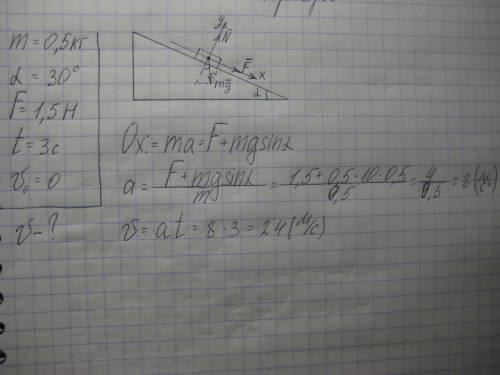 m = 0,5 кг
α = 30°
F = 1,5 Н
t = 3 с
v₀ = 0
v - ?
y
N̄
F̄
x
mḡ
α
Ox: ma = F + mg sinα
a = (F + mg sinα)/m = (1,5 + 0,5 · 10 · 0,5)/0,5 = 4/0,5 = 8 (м/с²)
v = at = 8 · 3 = 24 (м/с)